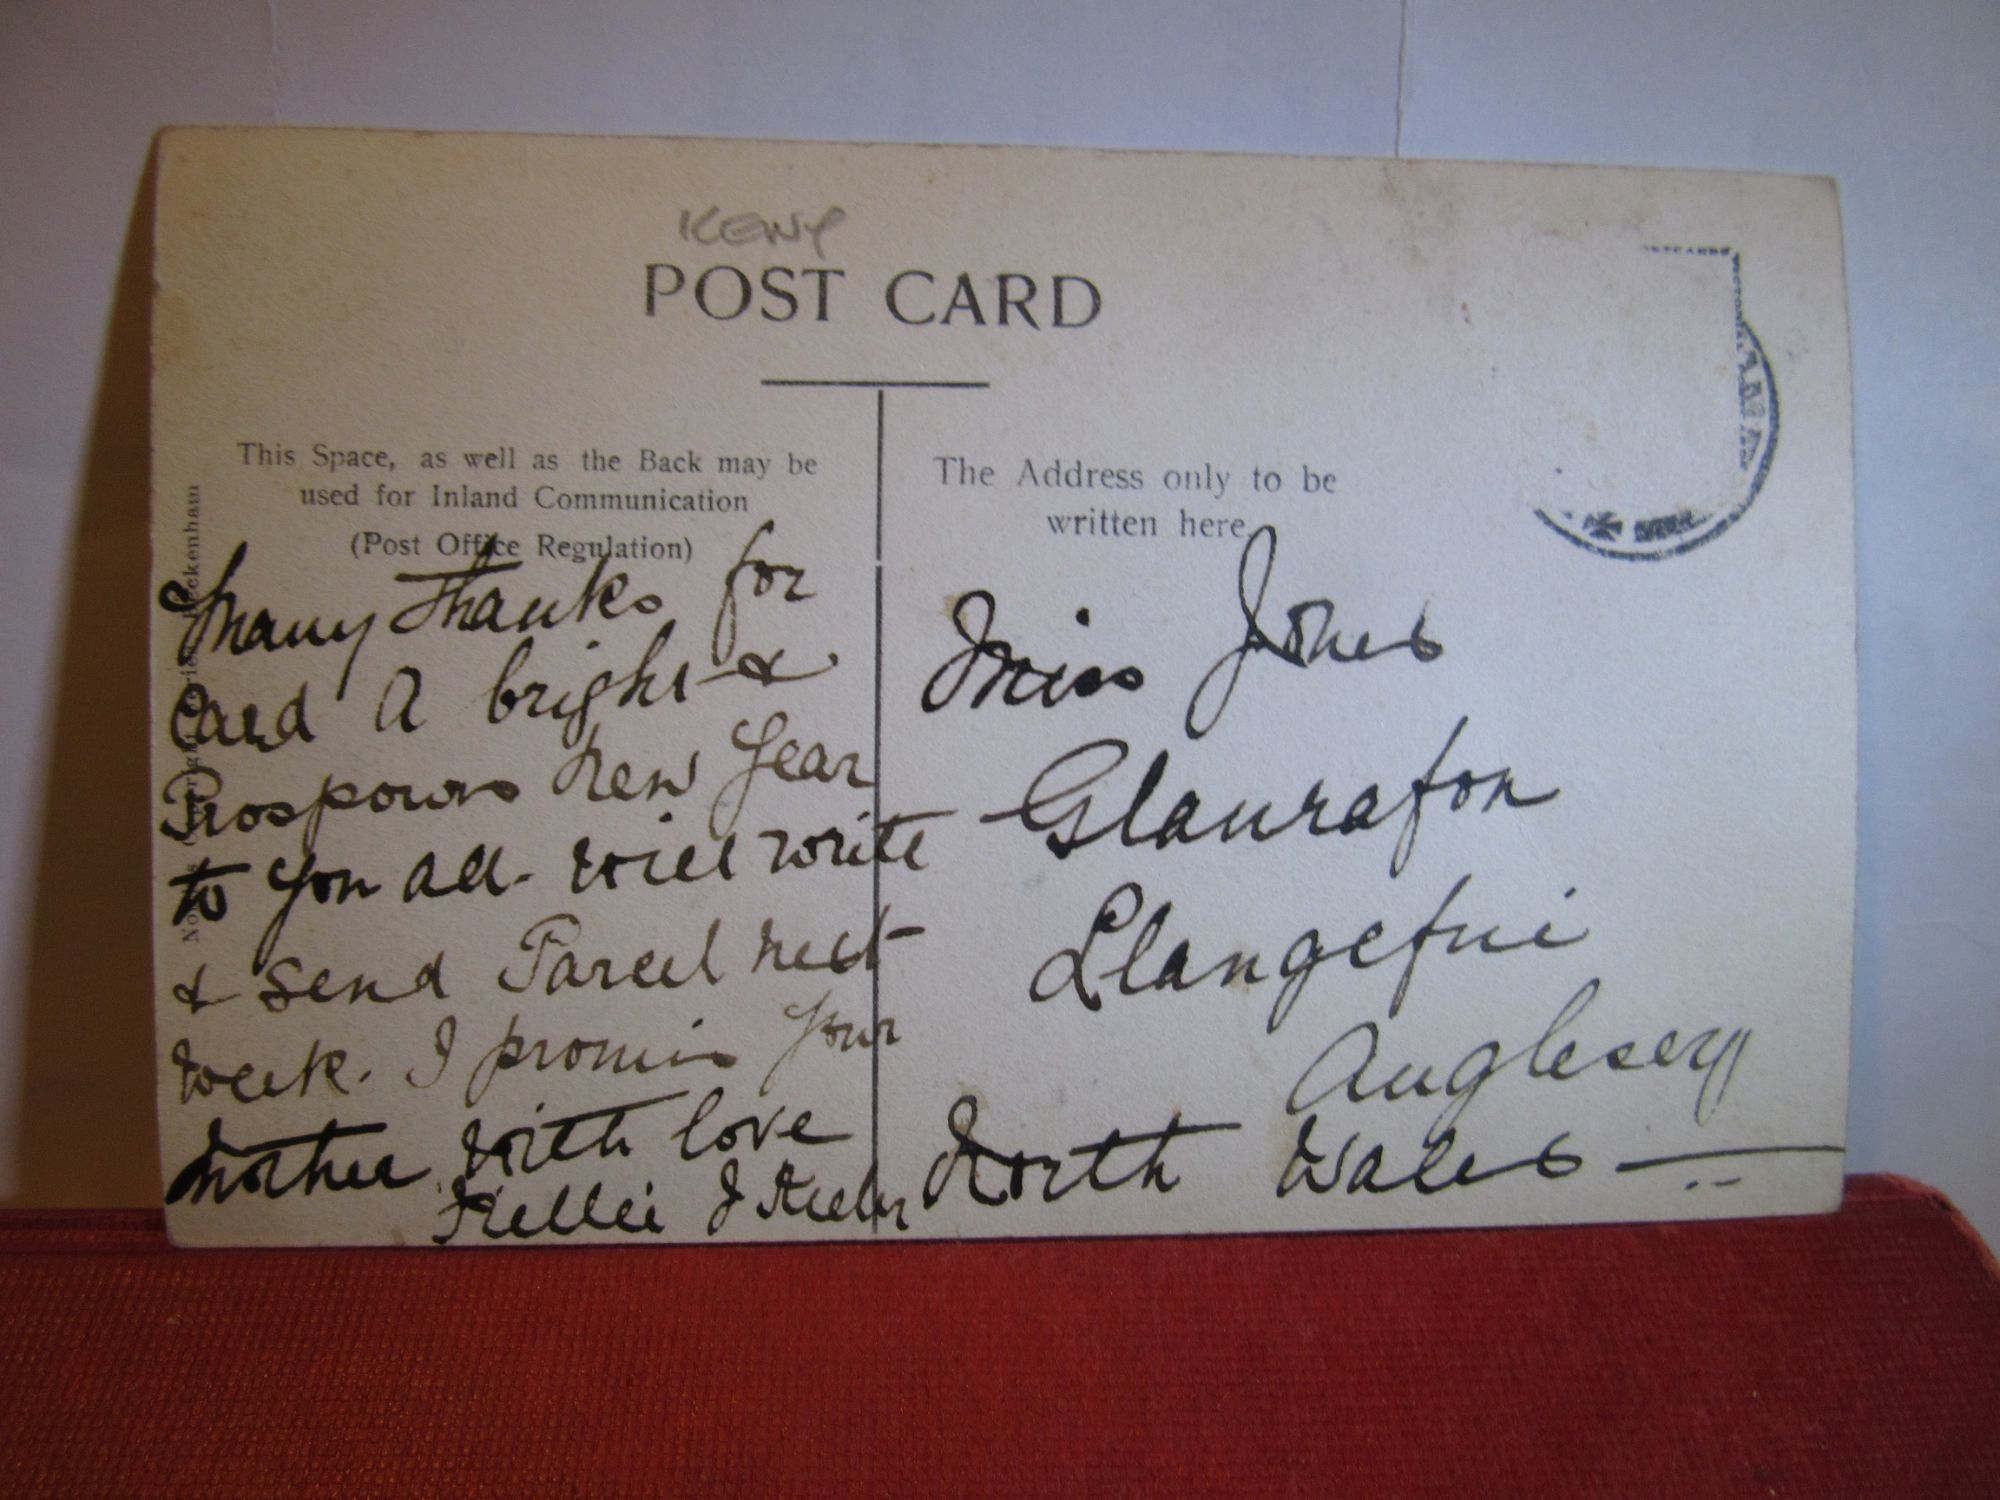 POST CARD
This Space, as well as the Back may be
used for Inland Communication
(Post Office Regulation)
The Address only to be
written here.
Many Thanks for
Card A bright &
Prosporous New Year
to you all. Will write
& Send Parcel next
week. I promis your
Mother. With love
Nellie
Miss Jones
Glanrafon
Llangefni
Anglesey
North Wales